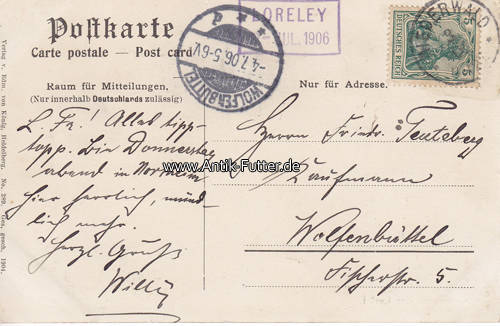 Postkarte
Carte postale — Post card
LORELEY
JUL. 1906
DEUTSCHES REICH
WOLFENBÜTTEL
-4.7.06.5-6V.
Raum für Mitteilungen.
(Nur innerhalb Deutschlands zulässig)
Nur für Adresse.
L. Fz! Alles tipp-
topp. Bin Donnerstag
abend in Northeim
hier herrlich, münd-
lich mehr.
Herzl. Gruß
Willy
Herrn Friedr. Teuteberg
Kaufmann
Wolfenbüttel
Fischerstr. 5.
www.Antik-Futter.de
Verlag v. Edm. von König, Heidelberg. No. 289. Ges. gesch. 1904.